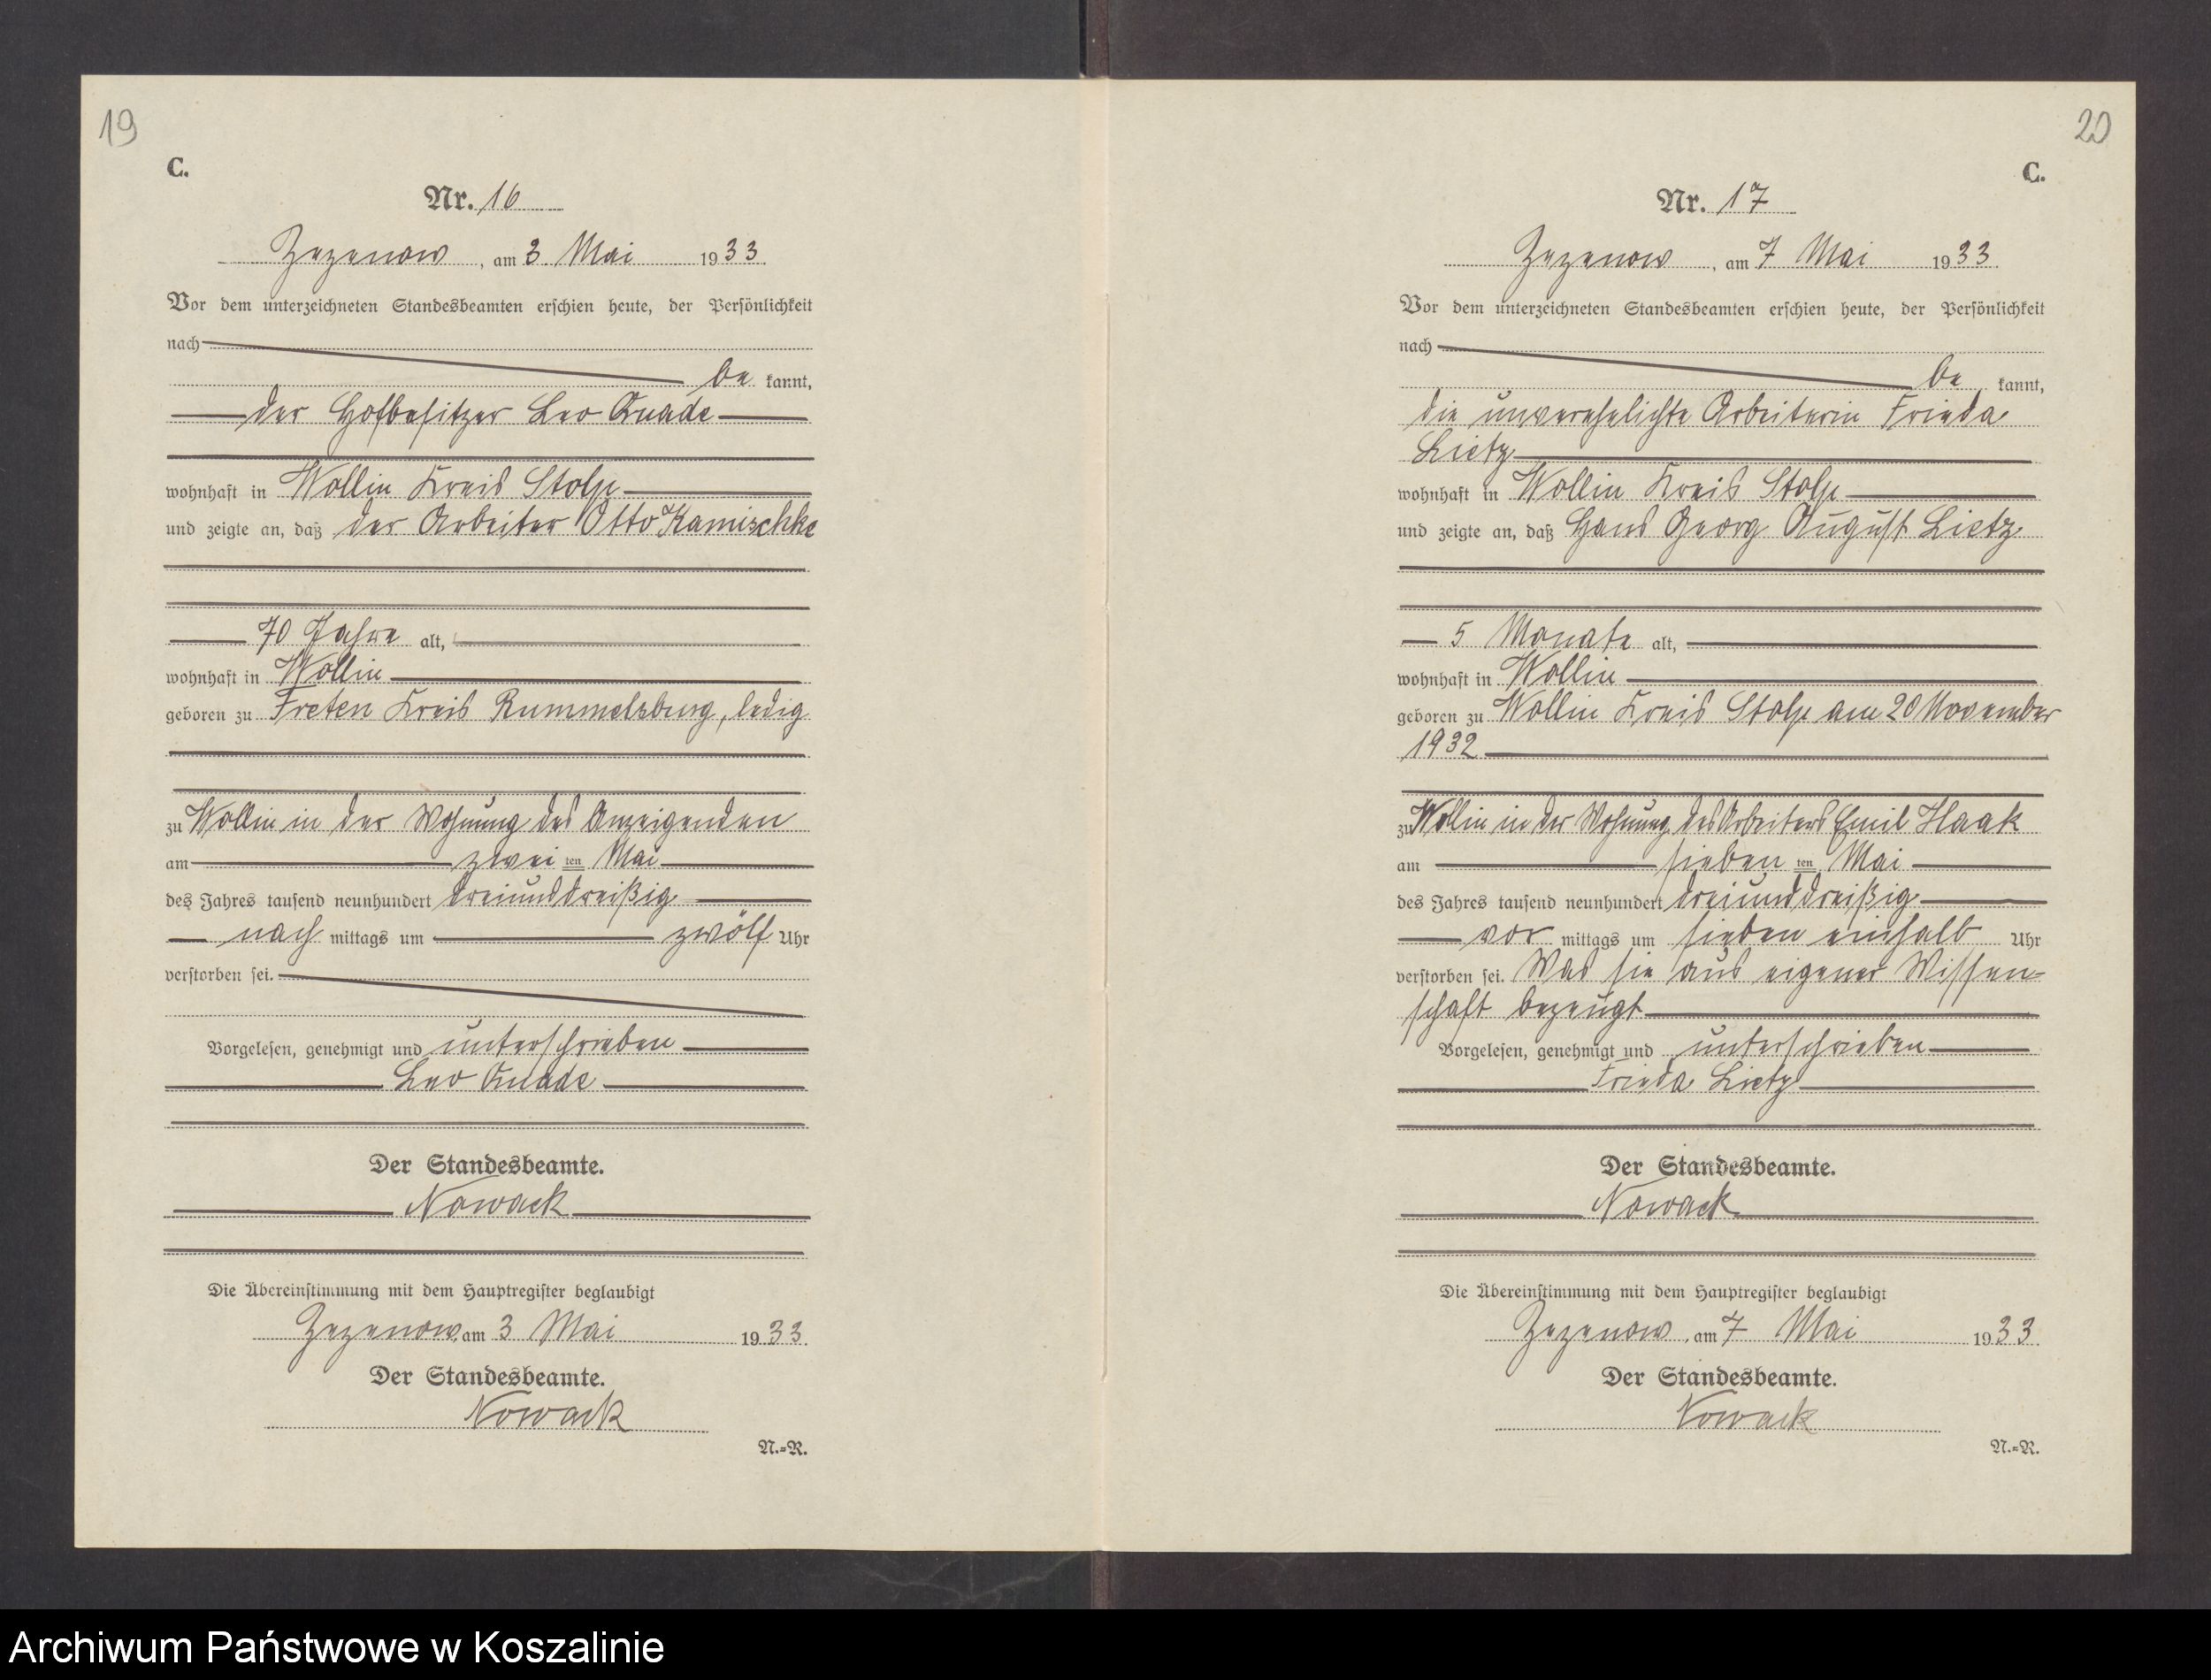 19
C.
Nr. 16
Zezenow, am 3 Mai 1933
Vor dem unterzeichneten Standesbeamten erschien heute, der Persönlichkeit
nach
be kannt,
der Hofbesitzer Leo Quade
wohnhaft in Wollin Kreis Stolp
und zeigte an, daß der Arbeiter Otto Kamischke
70 Jahre alt,
wohnhaft in Wollin
geboren zu Treten Kreis Rummelsburg, ledig
zu Wollin in der Wohnung des Anzeigenden
am zwei ten Mai
des Jahres tausend neunhundert dreiunddreißig
nach mittags um zwölf Uhr
verstorben sei.
Vorgelesen, genehmigt und unterschrieben
Leo Quade
Der Standesbeamte.
Nowack
Die Übereinstimmung mit dem Hauptregister beglaubigt
Zezenow, am 3 Mai 1933.
Der Standesbeamte.
Nowack
N.=R.
20
C.
Nr. 17
Zezenow, am 7 Mai 1933.
Vor dem unterzeichneten Standesbeamten erschien heute, der Persönlichkeit
nach
be kannt,
die unverehelichte Arbeiterin Frieda
Lietz
wohnhaft in Wollin Kreis Stolp
und zeigte an, daß Hans Georg August Lietz
5 Monate alt,
wohnhaft in Wollin
geboren zu Wollin Kreis Stolp am 20 November
1932
zu Wollin in der Wohnung des Arbeiters Emil Haak
am sieben ten Mai
des Jahres tausend neunhundert dreiunddreißig
vor mittags um sieben einhalb Uhr
verstorben sei. Was sie aus eigener Wissen=
schaft bezeugt
Vorgelesen, genehmigt und unterschrieben
Frieda Lietz
Der Standesbeamte.
Nowack
Die Übereinstimmung mit dem Hauptregister beglaubigt
Zezenow, am 7 Mai 1933.
Der Standesbeamte.
Nowack
N.=R.
Archiwum Państwowe w Koszalinie